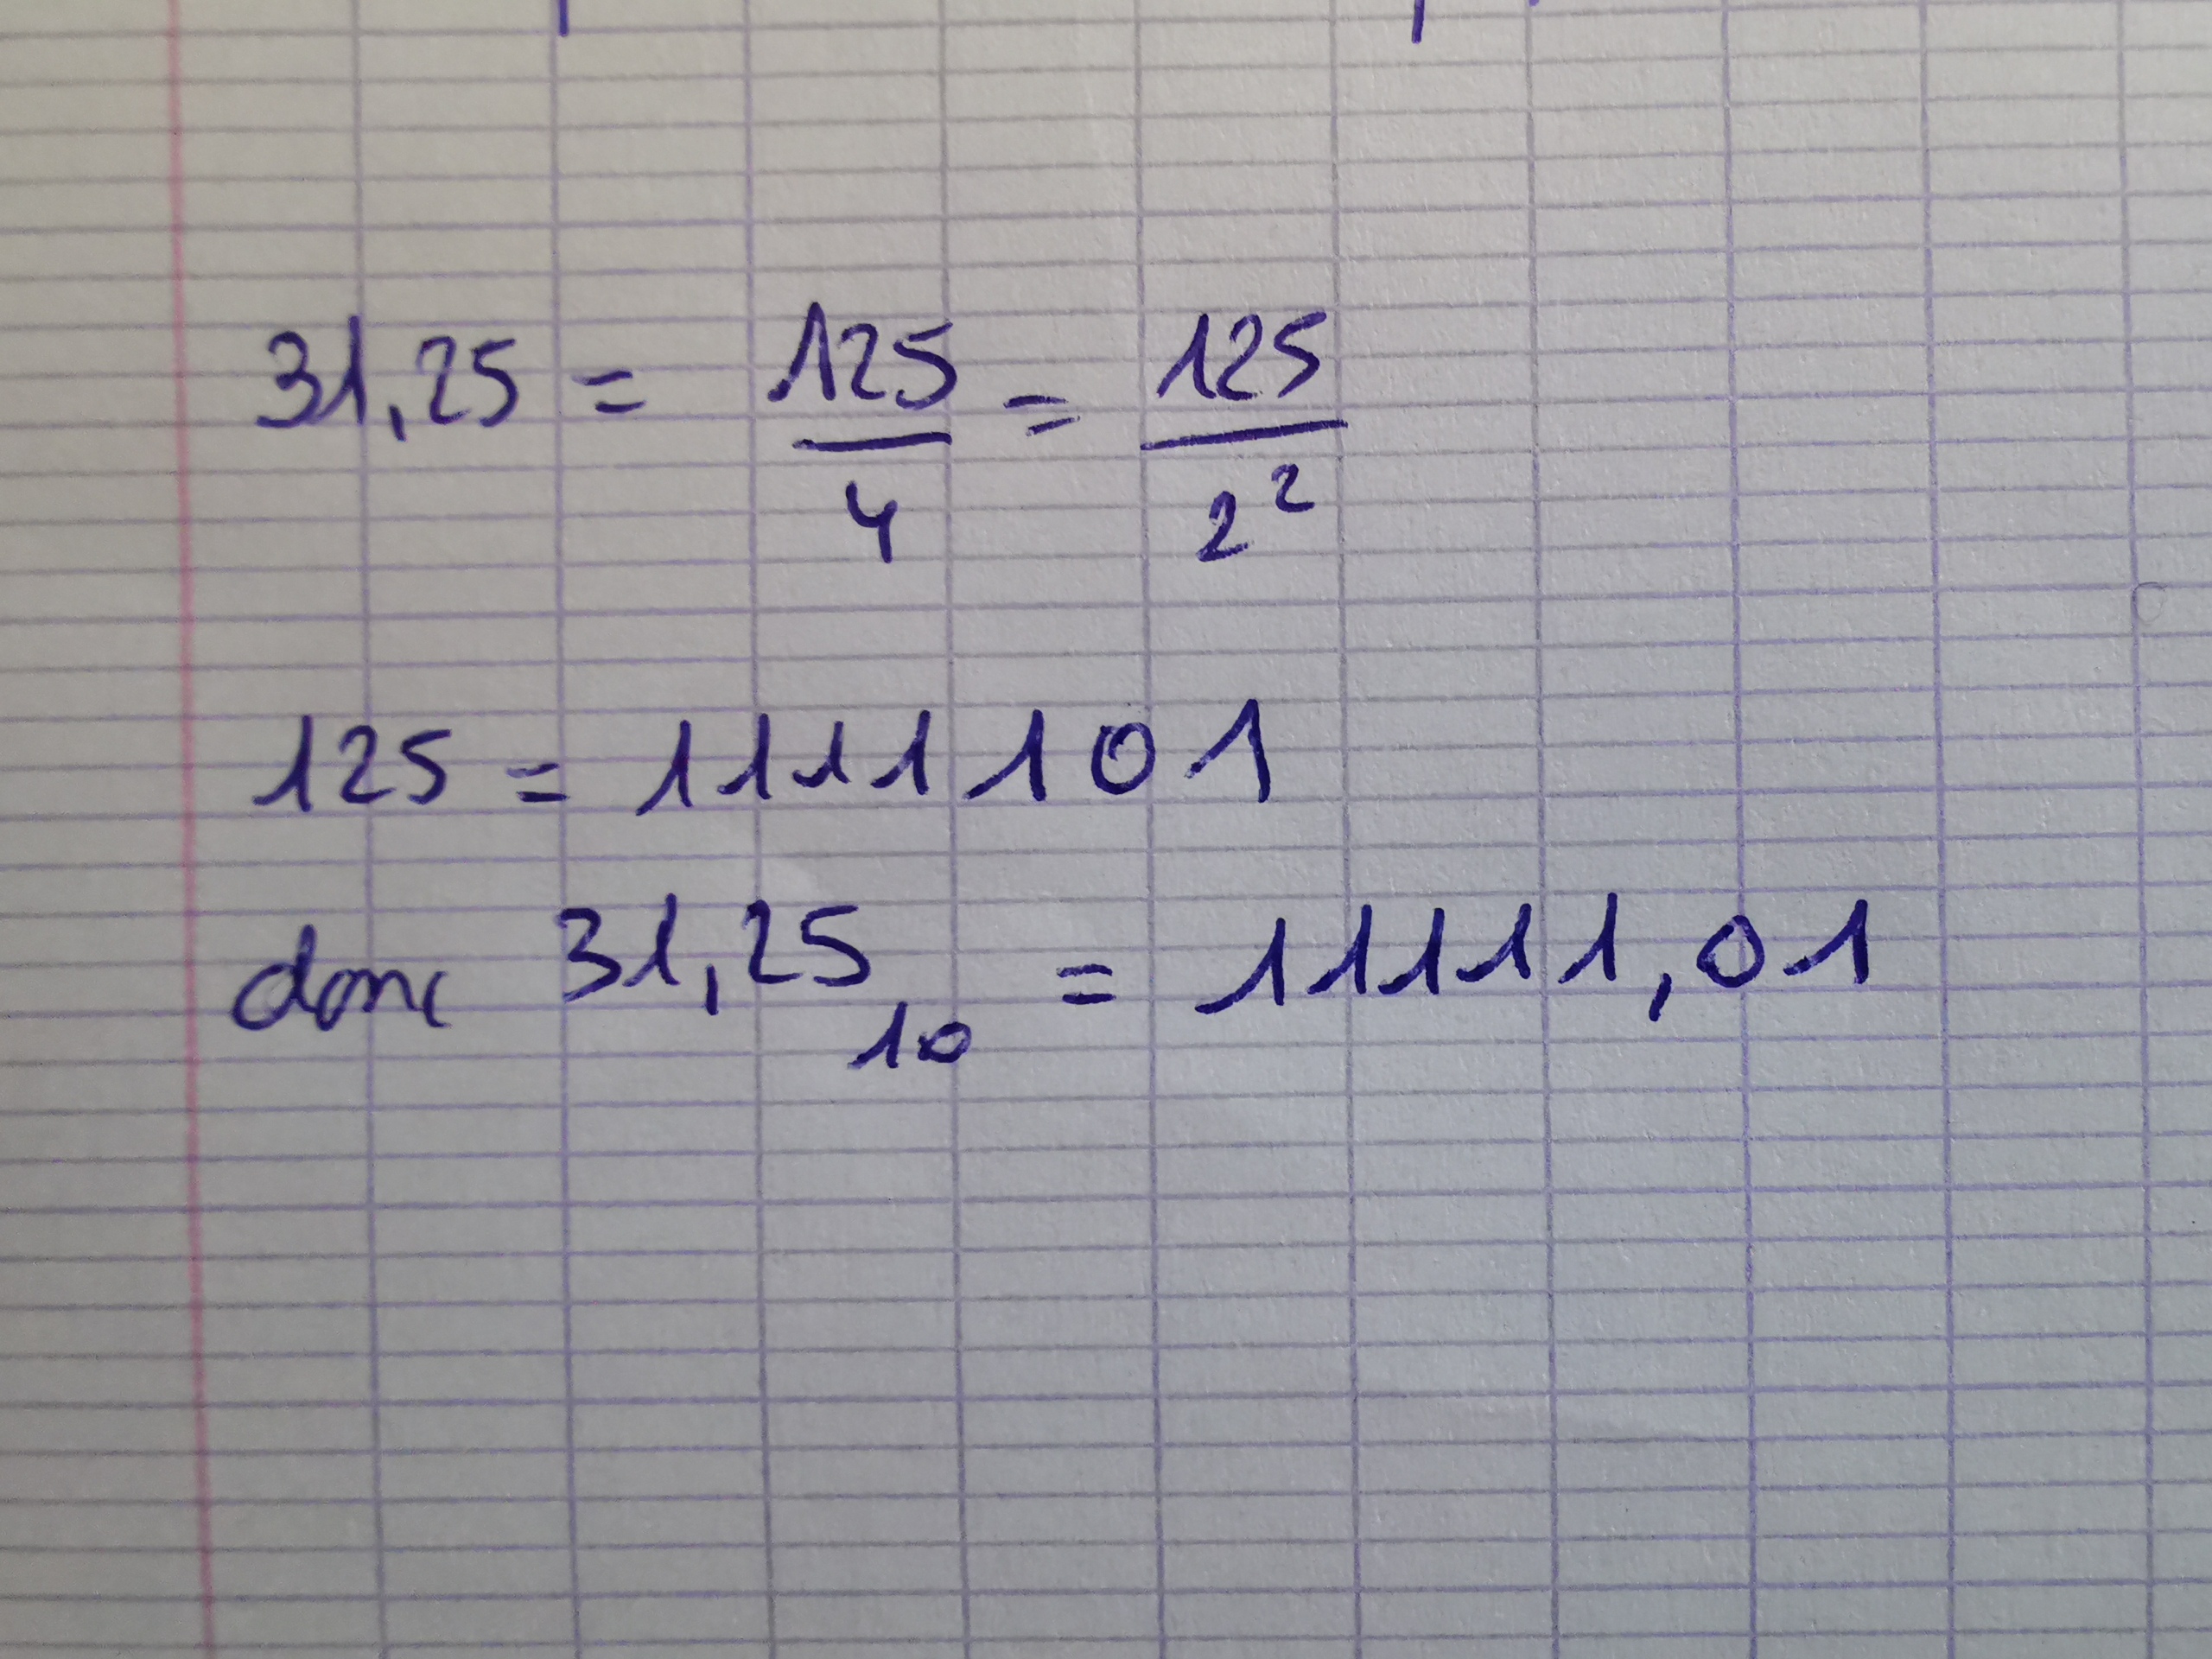 31,25 = 125/4 = 125/2²
125 = 1111101
donc 31,25₁₀ = 11111,01